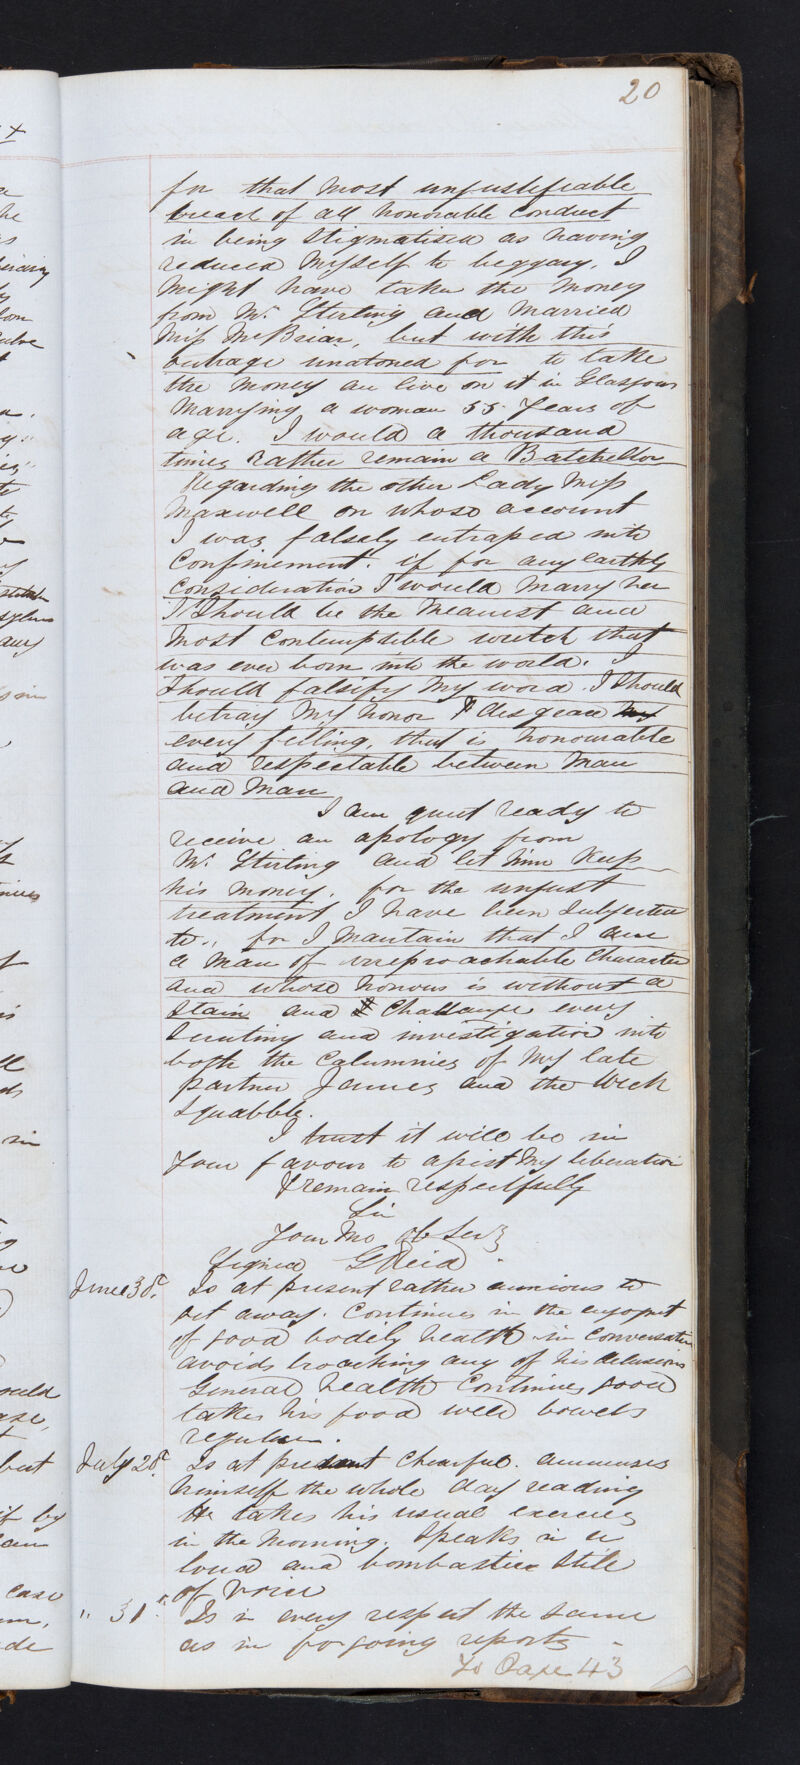 20
for that most unjustifiable
breach of all honorable conduct
in being stigmatised as having
reduced myself to beggary. I
might have taken the money
from Mr. Stirling and married
Miss McBriar, but with this
outrage unatoned for to take
the money an live on it in Glasgow
marrying a woman 55 years of
age. I would a thousand
times rather remain a Batchellor
Regarding the other Lady Miss
Maxwell on whose account
I was falsely entraped into
confinement. if for any earthly
consideration I would marry her
I should be the meanest and
most contemptible wretch that
was ever born into the world. I
should falsify my word. I should
betray my honor & disgrace my
every feeling, that is honourable
and respectable between man
and man
I am quit ready to
receive an apology from
Mr. Stirling and let him keep
his money, for the unjust
treatment I have been subjected
to., for I mantain that I am
a man of irreproachable character
and whose honour is without a
stain and I challange every
scrutiny and investigation into
both the calumnies of my late
partner James and the Wick
squabble.
I trust it will be in
your favour to asist my liberation
I remain respectfully
Sir
Your Mo Ob Serv
Signed G Reid
June 30th. Is at present rather anxious to
get away. Continues in the enjoyment
of good bodily health. in conversation
avoids broaching any of his delusions
General health continues good
takes his food well bowels
regular.
July 20th. Is at present chearful. ammuses
himself the whole day reading
He takes his usual exercise
in the morning. Speaks in a
loud and bombastic stile
of voice
" 31st. Is in every respect the same
as in forgoing reports
To Page 43